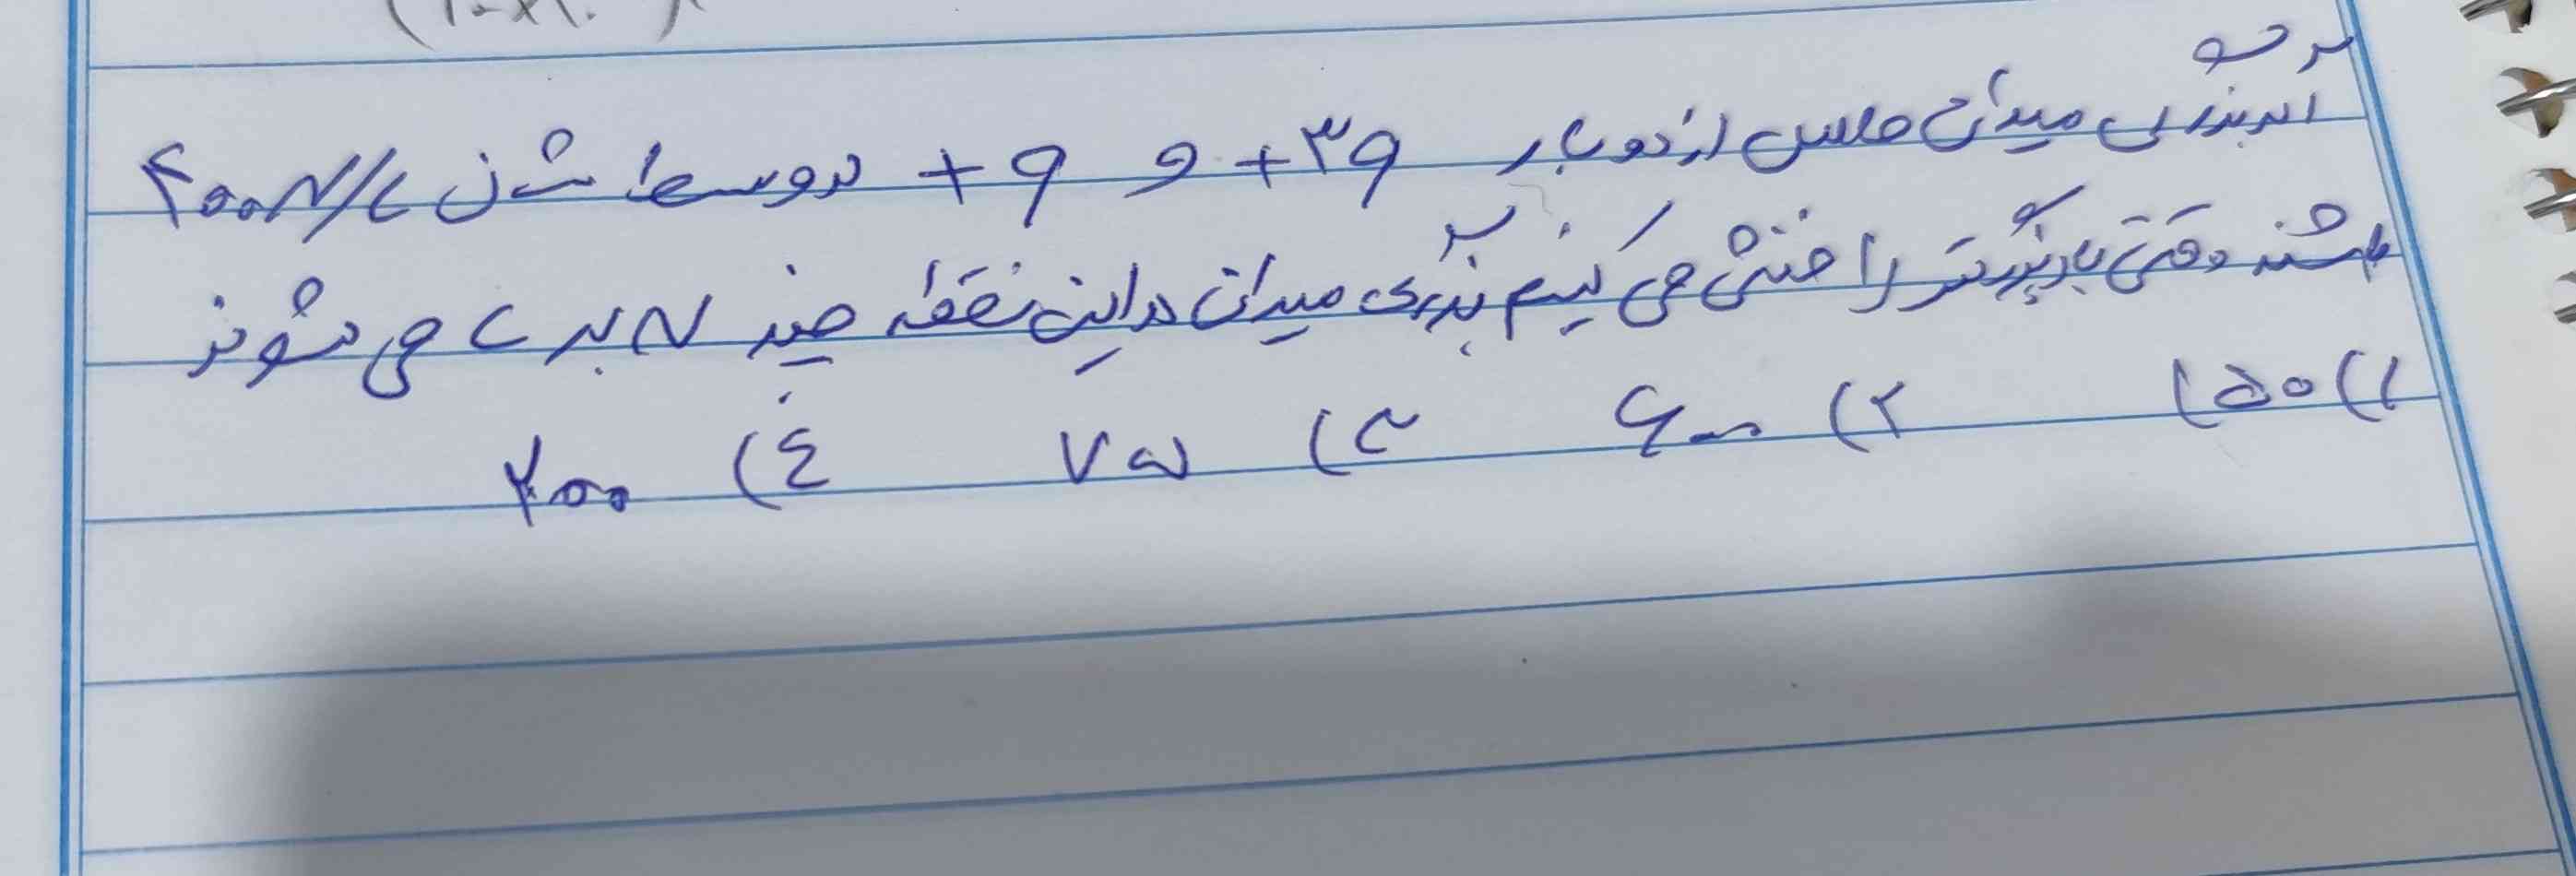 (۱۰×۱۰
اگر بزرگی میدان حاصل از دو بار +۳q و +q در وسط شان ۴۰۰N/C
باشند وقتی بار بزرگتر را خنثی می کنیم بزرگی میدان در این نقطه چند N بر C می شوند
۱) ۱۵۰ ۲) ۶۰۰ ۳) ۷۵ ۴) ۲۰۰